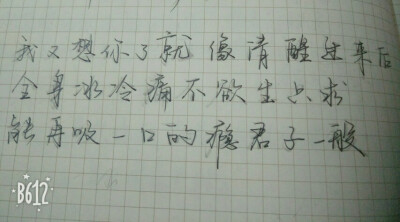 我又想你了就像清醒过来后
全身冰冷痛不欲生只求
能再吸一口的瘾君子一般
B612